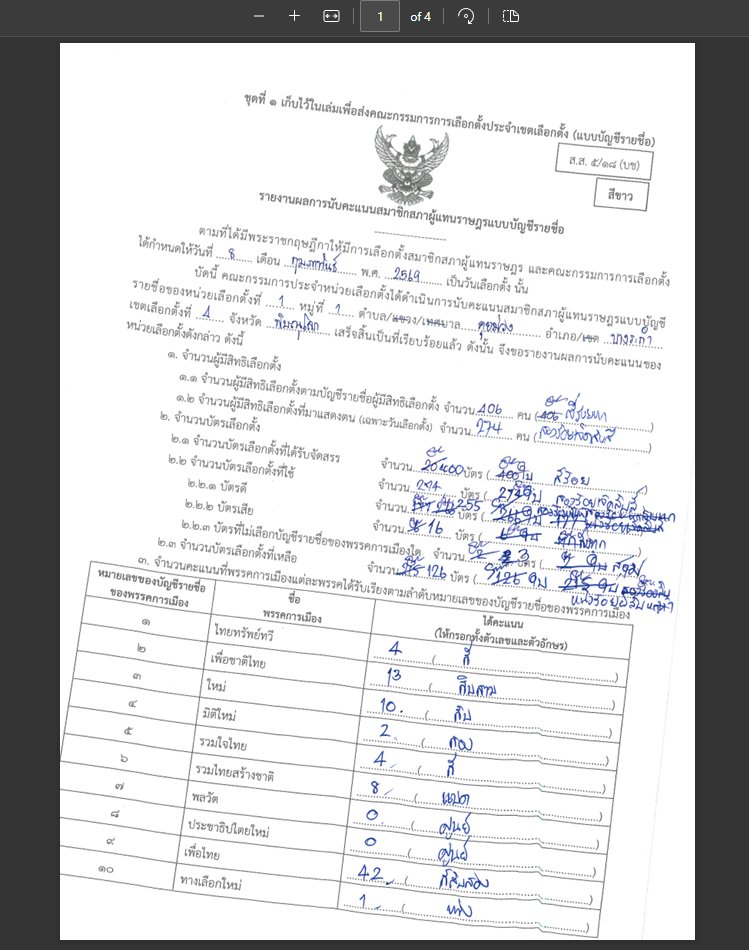 1 of 4
ชุดที่ ๑ เก็บไว้ในเล่มเพื่อส่งคณะกรรมการการเลือกตั้งประจำเขตเลือกตั้ง (แบบบัญชีรายชื่อ)
ส.ส. ๕/๑๘ (บช)
สีขาว
รายงานผลการนับคะแนนสมาชิกสภาผู้แทนราษฎรแบบบัญชีรายชื่อ
ตามที่ได้มีพระราชกฤษฎีกาให้มีการเลือกตั้งสมาชิกสภาผู้แทนราษฎร และคณะกรรมการการเลือกตั้ง
ได้กำหนดให้วันที่ 8 เดือน กุมภาพันธ์ พ.ศ. 2569 เป็นวันเลือกตั้ง นั้น
บัดนี้ คณะกรรมการประจำหน่วยเลือกตั้งได้ดำเนินการนับคะแนนสมาชิกสภาผู้แทนราษฎรแบบบัญชี
รายชื่อของหน่วยเลือกตั้งที่ 1 หมู่ที่ 1 ตำบล/แขวง/เทศบาล คุยม่วง อำเภอ/เขต บางระกำ
เขตเลือกตั้งที่ 4 จังหวัด พิษณุโลก เสร็จสิ้นเป็นที่เรียบร้อยแล้ว ดังนั้น จึงขอรายงานผลการนับคะแนนของ
หน่วยเลือกตั้งดังกล่าว ดังนี้
๑. จำนวนผู้มีสิทธิเลือกตั้ง
๑.๑ จำนวนผู้มีสิทธิเลือกตั้งตามบัญชีรายชื่อผู้มีสิทธิเลือกตั้ง จำนวน 406 คน (406 สี่ร้อยหก)
๑.๒ จำนวนผู้มีสิทธิเลือกตั้งที่มาแสดงตน (เฉพาะวันเลือกตั้ง) จำนวน 274 คน (สองร้อยเจ็ดสิบสี่)
๒. จำนวนบัตรเลือกตั้ง
๒.๑ จำนวนบัตรเลือกตั้งที่ได้รับจัดสรร จำนวน 400 บัตร ( สี่ร้อย )
๒.๒ จำนวนบัตรเลือกตั้งที่ใช้ จำนวน 274 บัตร ( สองร้อยเจ็ดสิบสี่ )
๒.๒.๑ บัตรดี จำนวน 255 บัตร ( )
๒.๒.๒ บัตรเสีย จำนวน 16 บัตร ( )
๒.๒.๓ บัตรที่ไม่เลือกบัญชีรายชื่อของพรรคการเมืองใด จำนวน 3 บัตร ( สาม )
๒.๓ จำนวนบัตรเลือกตั้งที่เหลือ จำนวน 126 บัตร ( )
๓. จำนวนคะแนนที่พรรคการเมืองแต่ละพรรคได้รับเรียงตามลำดับหมายเลขของบัญชีรายชื่อของพรรคการเมือง
หมายเลขของบัญชีรายชื่อ
ของพรรคการเมือง
ชื่อ
พรรคการเมือง
ได้คะแนน
(ให้กรอกทั้งตัวเลขและตัวอักษร)
๑ ไทยทรัพย์ทวี 4 ( สี่ )
๒ เพื่อชาติไทย 13 ( สิบสาม )
๓ ใหม่ 10 ( สิบ )
๔ มิติใหม่ 2 ( สอง )
๕ รวมใจไทย 4 ( สี่ )
๖ รวมไทยสร้างชาติ 8 ( แปด )
๗ พลวัต 0 ( ศูนย์ )
๘ ประชาธิปไตยใหม่ 0 ( ศูนย์ )
๙ เพื่อไทย 42 ( สี่สิบสอง )
๑๐ ทางเลือกใหม่ 1 ( หนึ่ง )